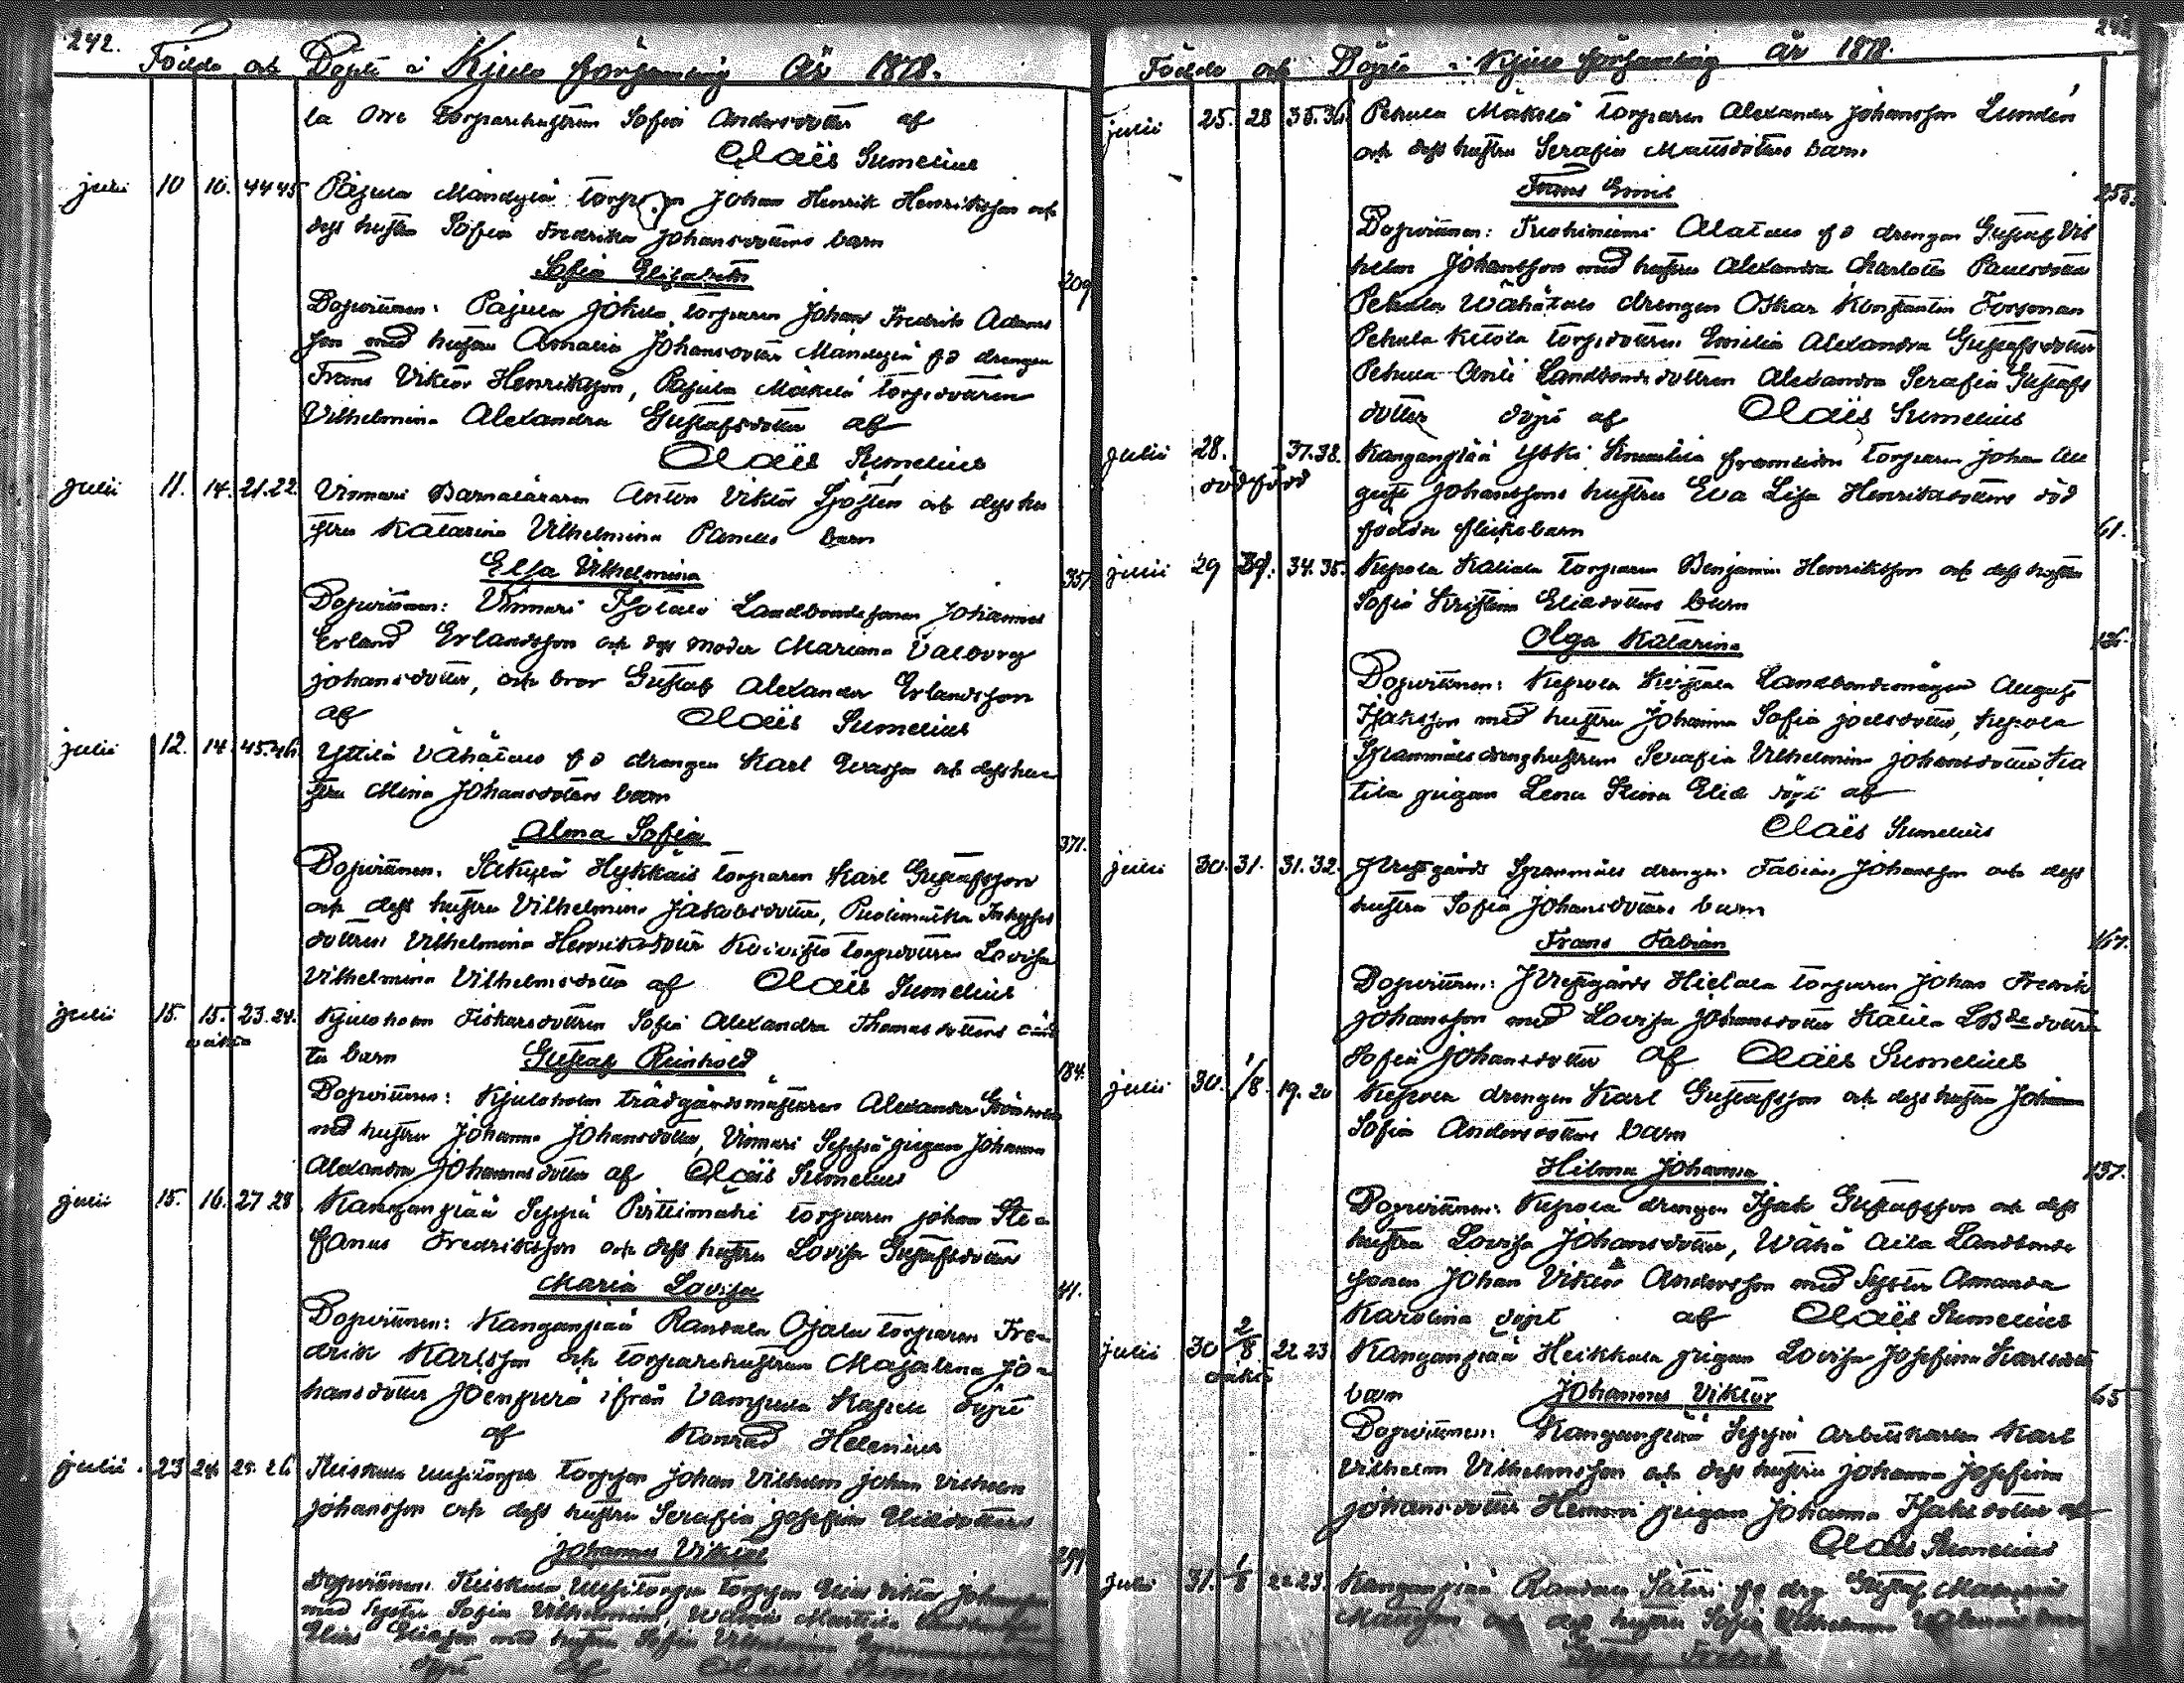 242.
Födde och Döpte i Kjulo församling År 1878.
la Orre torparehustrun Sofia Andersdotter af
Claës Sumelius
juli 10 10. 44 45 Pajula Mändylä Johan Henrik Henriksson och
dess hustru Sofia Fredrika Johansdotters barn
Sofia Elisabeth 209
Dopvittnen: Pajula Jokela torparen Johan Fredrik Adams
son med hustru Amalia Johansdotter Mändylä fd drengen
Frans Viktor Henriksson, Pajula Mäkelä torp.dottren
Vilhelmina Alexandra Gustafsdotter af
Claës Sumelius
Julii 11. 14. 21.22. Vinnari Barnaläraren Anton Viktor Sjösten och dess hu
stru Katarina Vilhelmina barn
Elsa Vilhelmina 357
Dopvittnen: Vinnari Isotalo Landbondesonen Johannes
Erland Erlandsson och dess moder Mariana Valborg
Johansdotter, och bror Gustaf Alexander Erlandsson
af Claës Sumelius
julii 12. 14 45.46. Yttilä Vähätalo fd drengen Karl och dess hu
stru Mina Johansdotters barn
Alma Sofia 371.
Dopvittnen: Säkylä Hykkäis torparen Karl Gustafsson
och dess hustru Vilhelmina Jakobsdotter, Inhyses
dottren Vilhelmina Henriksdotter Koivisto torpdottren Lovisa
Vilhelmina Vilhelmsdotter af Claës Sumelius
julii 15. 15. 23.24. Kjuloholm Fiskarsdottren Sofia Alexandra Thomasdotters oäk
oäkta
ta barn Gustaf Reinhold 184.
Dopvittnen: Kjuloholm trädgårdsmästaren Alexander
med hustru Johanna Johansdotter, Vinnari Seppä pigan Johanna
Alexandra Johannesdotter af Claës Sumelius
julii 15. 16. 27 28. Kanganpää Seppä Pirttimäki torparen Johan Ste-
fanus Fredriksson och dess hustru Lovisa Gustafsdotter
Maria Lovisa 41.
Dopvittnen: Kanganpää Randala Ojala torparen Fre-
drik Karlsson och torparehustrun Magdalena Jo-
hansdotter Joenperä ifrån Vampula Kapell döpt
af Konrad Helenius
julii. 23 25. 26 Uusitorppa torpson Johan Vilhelm Johan Vilhelm
Johansson och dess hustru Serafia Josefina Eliædotters
Johannes Viktor 299
Dopvittnen: Uusitorppa torpson Elias Viktor Johansson
med Syster Sofia Vilhelmina,
Elias Eliasson med hustru Sofia Vilhelmina
döpt af Claës Sumelius
Födde och Döpte i Kjulo församling År 1878.
julii 25. 28 35.36. Pehula Mäkelä torparen Alexander Johansson Lundén
och dess hustru Serafia Mattsdotters barn
Frans Emil 255.
Dopvittnen: Alatalo fd drengen Gustaf Vil
helm Johansson med hustru Alexandra Charlotta Paulsdotter
Pehula Wähätalo drengen Oskar Konstantin Forsman
Pehula Ketola torp.dottren Emilia Alexandra Gustafsdotter
Pehula Anti Landbondedottren Alexandra Serafia Gustafs
dotter döpt af Claës Sumelius
Julii 28. 37.38. Kanganpää Yski framlidne torparen Johan Au
dödfödd gust Johanssons hustru Eva Lisa Henriksdotters död
födda flickobarn 61.
julii 29 34.35. Kepola Kallala torparen Benjamin Henriksson och dess hustru
Sofia Kristina Eliædotters barn
Olga Katarina 126.
Dopvittnen: Kepola Landbondemågen August
Isaksson med hustru Johanna Sofia Joelsdotter, Kepola
Spannmålsdrenghustrun Serafia Vilhelmina Johansdotter
pigan Lena Stina Eliæ döpt af
Claës Sumelius
julii 30. 31. 31.32. Prestgårds Spannmåls drengen Fabian Johansson och dess
hustru Sofia Johansdotters barn
Frans Fabian 167.
Dopvittnen: Prestgårds Hietala torparen Johan Fredrik
Johansson med Lovisa Johansdotter LBde dottren
Sofia Johansdotter af Claës Sumelius
julii 30. 1/8. 19. 20 Kepola drengen Karl Gustafsson och dess hustru Johanna
Sofia Andersdotters barn
Hilma Johanna 137.
Dopvittnen: Kepola drengen Isak Gustafsson och dess
hustru Lovisa Johansdotter, Wähä Aila Landbonde
sonen Johan Viktor Andersson med Syster Amanda
Karolina döpt af Claës Sumelius
julii 30 2/8 22 23 Kanganpää Heikkala pigan Lovisa Josefina Karlsdotters
oäkta
barn Johannes Viktor 65
Dopvittnen: Kanganpää Seppä Arbetskarlen Karl
Vilhelm Vilhelmsson och dess hustru Johanna Josefina
Johansdotter Hemmi pigan Johanna Isaksdotter af
Claës Sumelius
Juli 31. 1/8 22.23. Kanganpää Randala Säteri fd drg Gustaf
Mattsson och dess hustru Sofia Vilhelmina